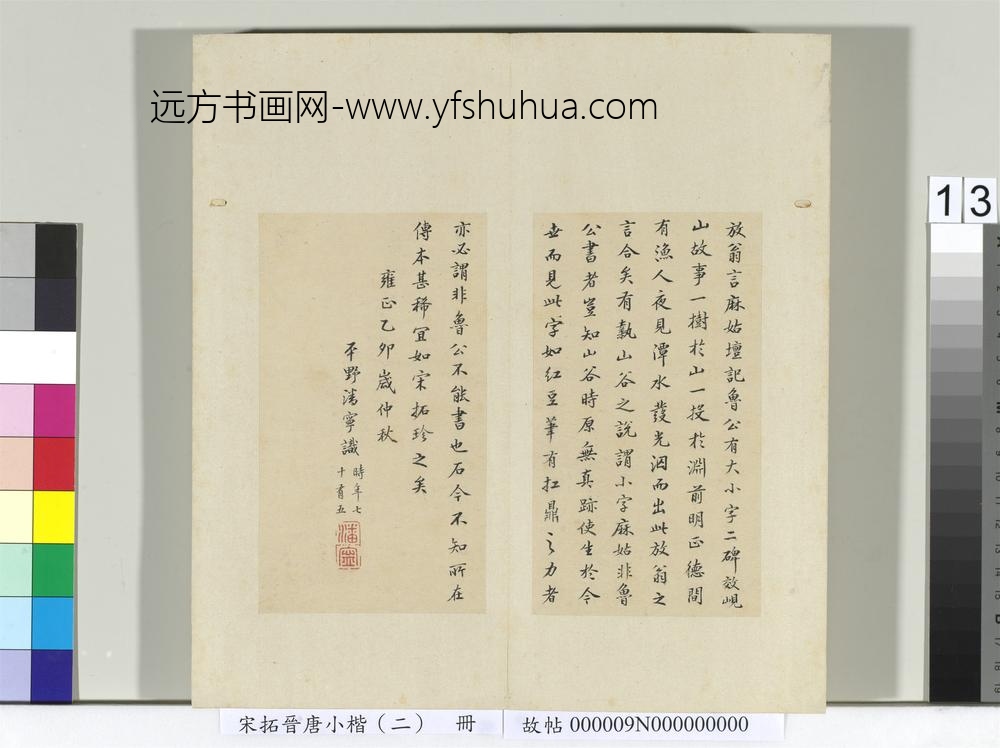 远方书画网-www.yfshuhua.com
13
放翁言麻姑壇記魯公有大小字二碑效峴
山故事一樹於山一投於淵前明正德間
有漁人夜見潭水發光泅而出此放翁之
言合矣有執山谷之說謂小字麻姑非魯
公書者豈知山谷時原無真跡使生於今
世而見此字如紅豆筆有扛鼎之力者
亦必謂非魯公不能書也石今不知所在
傳本甚稀宜如宋拓珍之矣
雍正乙卯歲仲秋
平野潘寧識
時年七
十有五
潘寧
宋拓晉唐小楷（二） 冊
故帖 000009N000000000